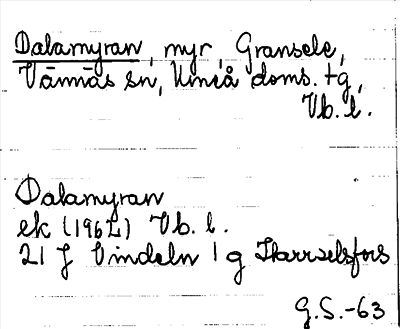 Dalamyran, myr, Gransele,
Vännäs sn, Umeå doms. tg,
Vb. l.
Dalamyran
ek (1962) Vb. l.
21 J Vindeln 1 g Harrselsfors
G.S.-63